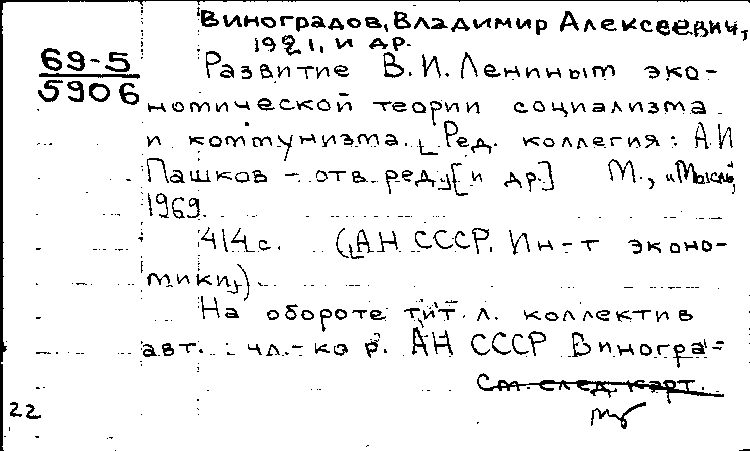 Виноградов, Владимир Алексеевич,
1921, и др.
69-5
5906
Развитие В. И. Лениным эко-
номической теории социализма
и коммунизма. [Ред. коллегия: А. И.
Пашков - отв. ред. [и др.] М., "Мысль",
1969.
414 с. ([АН СССР. Ин-т эконо-
мики])
На обороте тит. л. коллектив
авт.: чл.-кор. АН СССР Виногра-
См. след. карт.
22